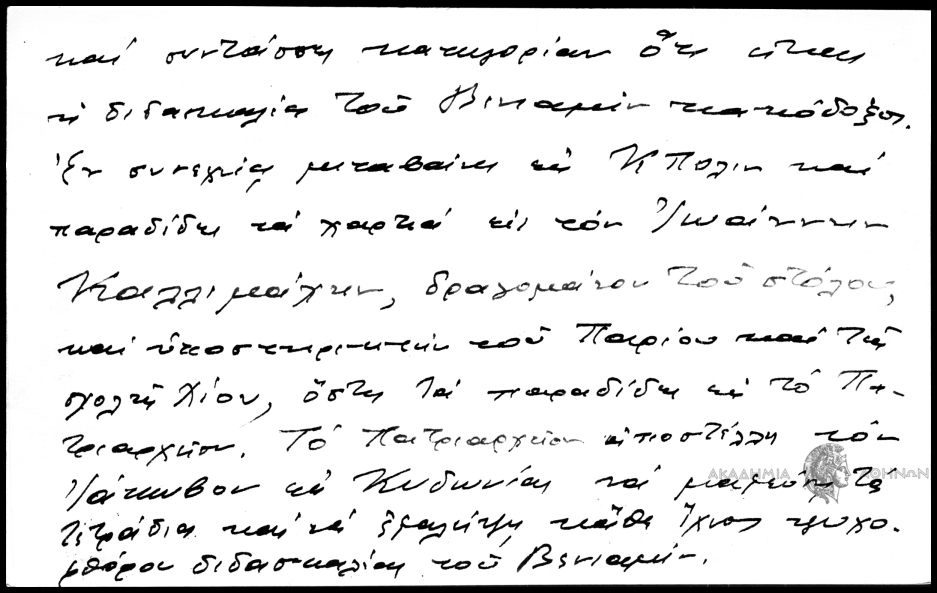 καί συντάσσει κατηγορίαν ὅτι εἶναι
ἡ διδασκαλία τοῦ Βενιαμίν κακόδοξος.
Ἐν συνεχείᾳ μεταβαίνει εἰς Κ Πολιν καί
παραδίδει τά χαρτιά εἰς τόν Ἰωάννην
Καλλιμάχην, δραγομάνον τοῦ στόλου,
καί ὑποστηρικτήν τοῦ Παρίου καί τῆς
σχολῆς Χίου, ὅστις τά παραδίδει εἰς τό Πα-
τριαρχεῖον. Τό Πατριαρχεῖον ἀποστέλλει τόν
Ἰάκωβον εἰς Κυδωνίας νά μαζεύσῃ τά
τετράδια καί νά ἐξαλείψῃ κάθε ἴχνος ψυχο-
φθόρου διδασκαλίας τοῦ Βενιαμίν.
ΑΚΑΔΗΜΙΑ ΑΘΗΝΩΝ